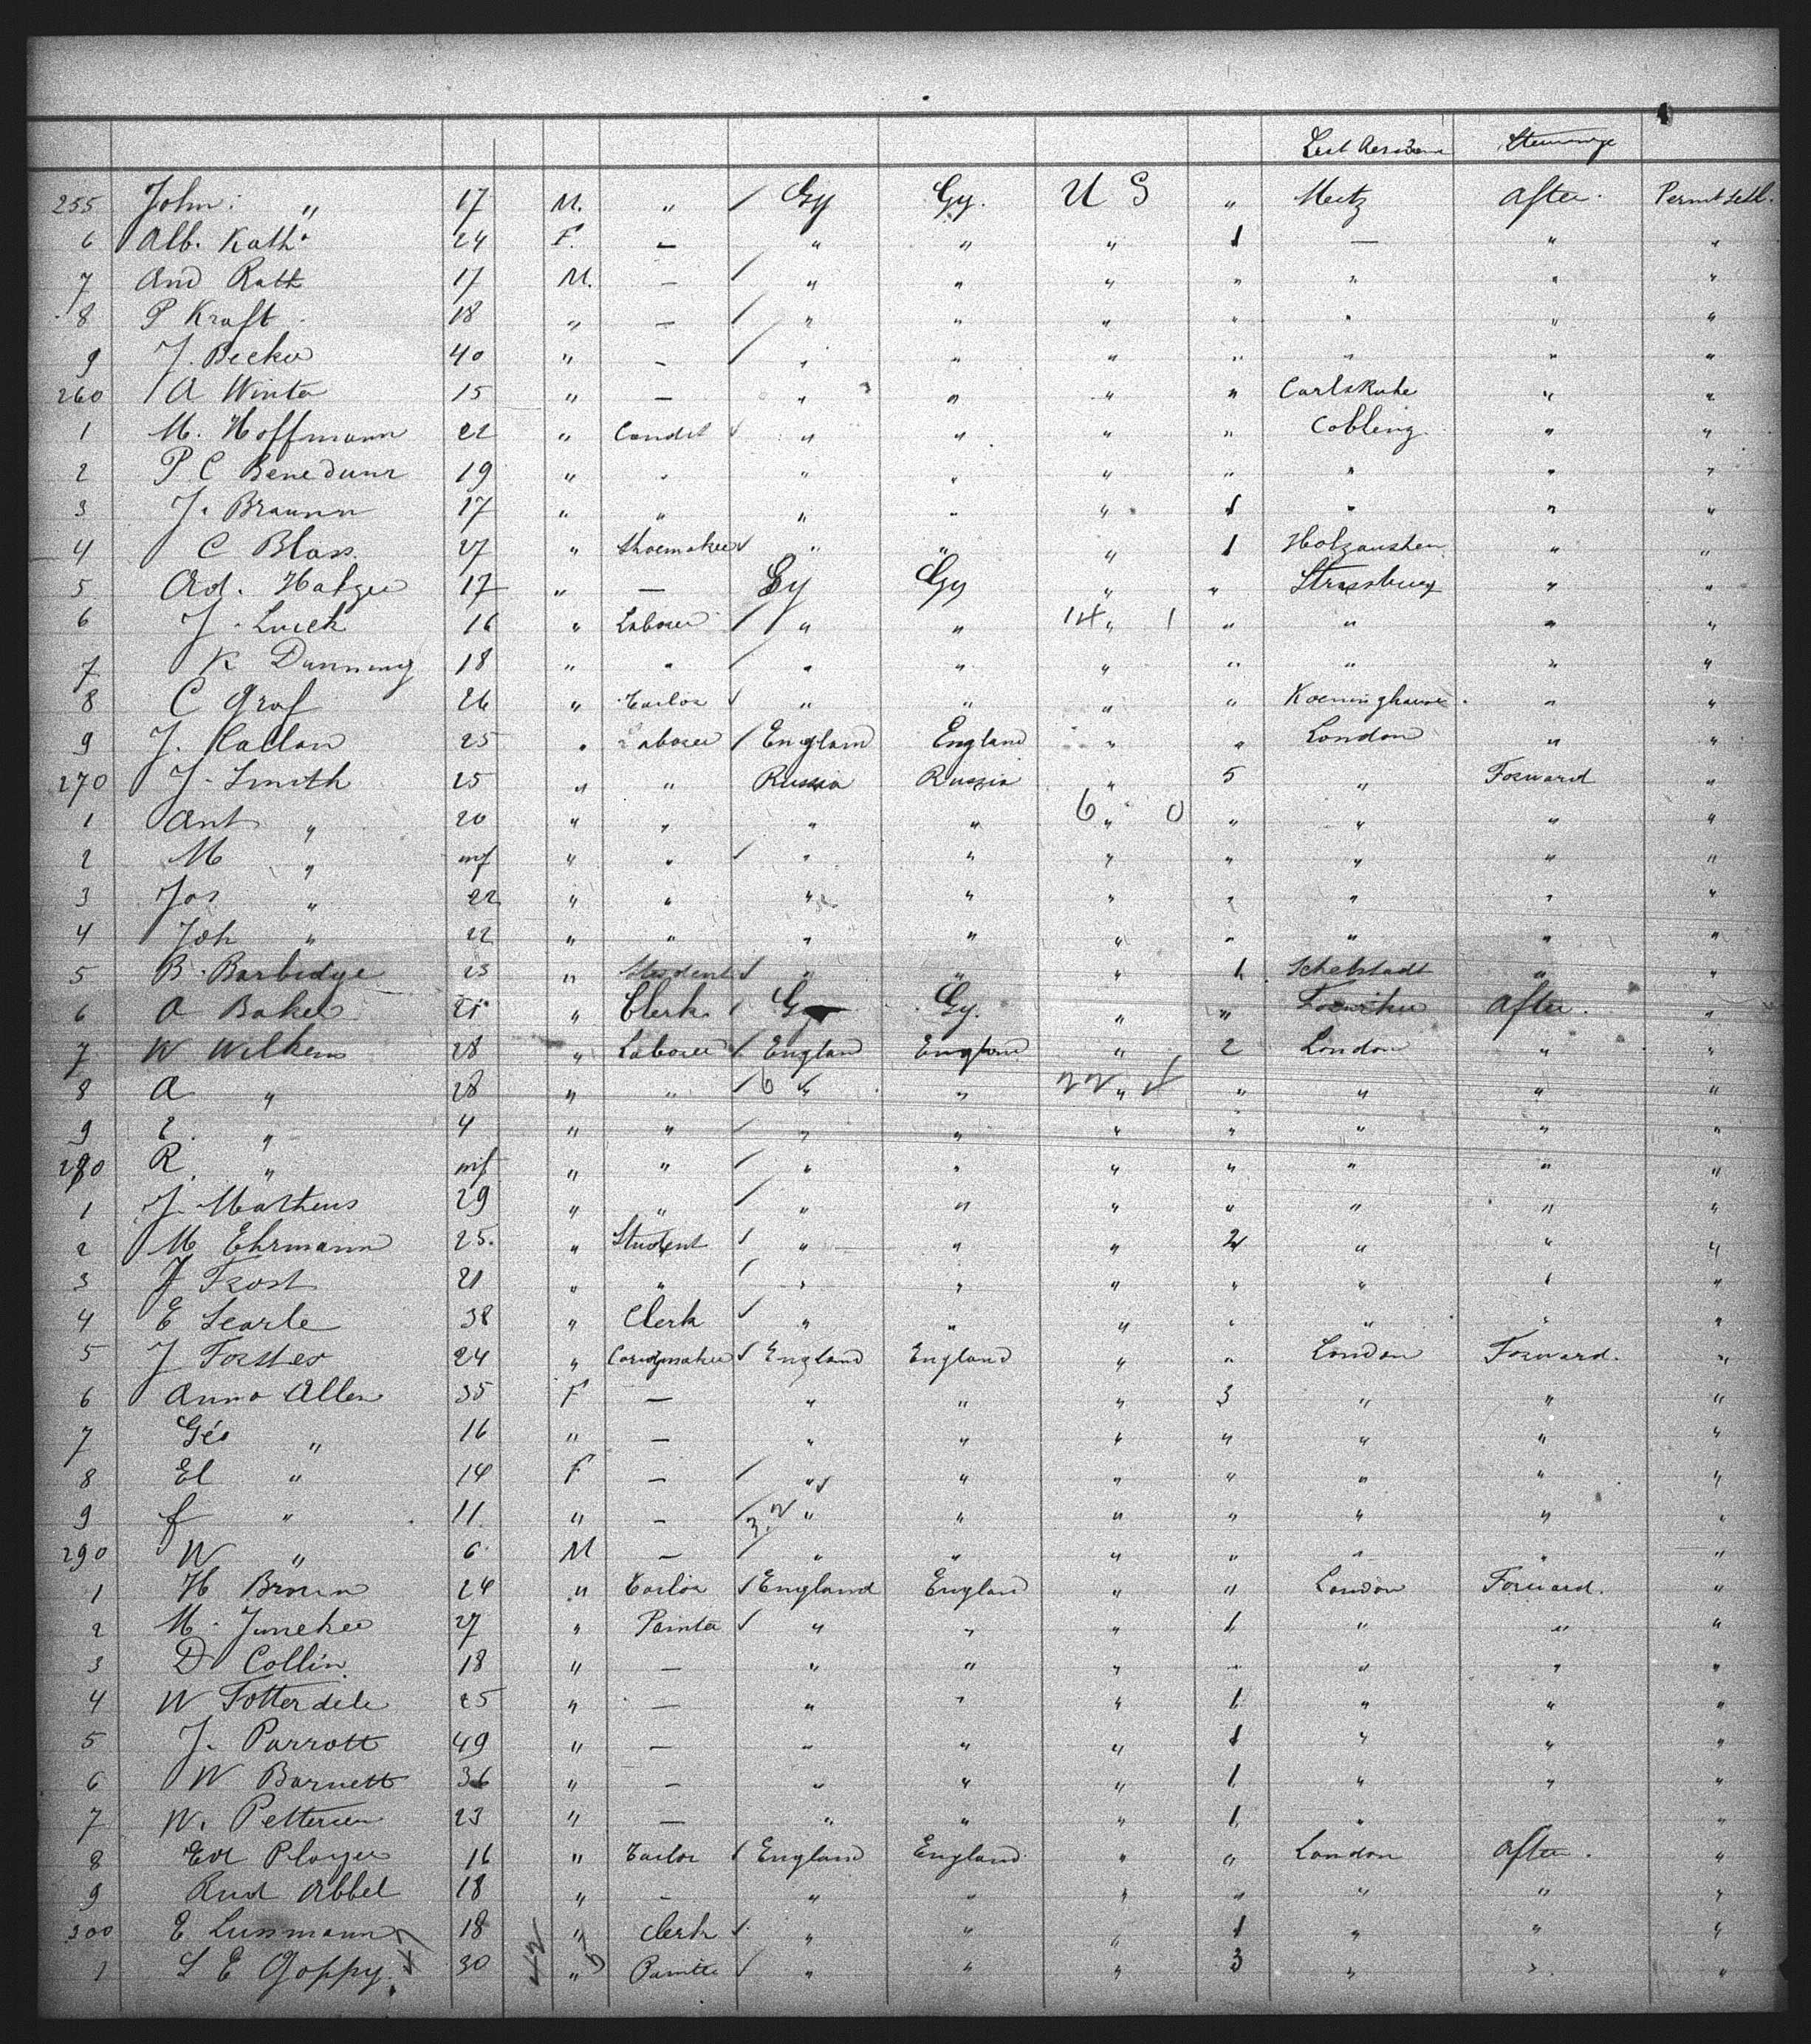 Last Residence Steerage
255 John " 17 M. " / Gy Gy. U S " Metz After. Permt settl.
6 Alb. Kath 24 F. — " " " 1 — " "
7 And Rath 17 M. — / " " " " " " "
8 P Kraft 18 " — / " " " " " " "
9 J. Becker 40 " — / " " " " " " "
260 A Winter 15 " — " " " " Carlsruhe " "
1 M. Hoffmann 22 " Candit ✓ " " " " Coblenz " "
2 P. C 19 " " " " " " " " "
3 J. Braunn 17 " " " " " 1 " " "
4 C Blass 27 " Shoemaker ✓ " " " 1 " "
5 Ad. 17 " — Gy Gy " " Strassburg " "
6 J. Luick 16 " Laborer / " " 14 " 1 " " " "
7 K 18 " " / " " " " " " "
8 C Graf 26 " Tailor ✓ " " " " " "
9 J. Callan 25 " Laborer / England England " " London " "
270 J. Smith 25 " " Russia Russia " 5 " Forward "
1 Ant " 20 " " " " 6 " 0 " " " "
2 M " inf " " ✓ " " " " " " "
3 Jos " 22 " " " " " " " " "
4 Joh " 22 " " " " " " " " "
5 B. Barbidge 23 " Student ✓ " " " 1 Schelstadt " "
6 A Baker 21 " Clerk / Gy Gy. " " After. "
7 W Wilkens 28 " Laborer ✓ England England " 2 London " "
8 A " 28 " " / 6 " " 22 " 4 " " " "
9 E. " 4 " " / " " " " " " "
280 R " inf " " / " " " " " " "
1 J. Mathews 29 " " / " " " " " " "
2 M Ehrmann 25. " Student / " " " 2 " " "
3 J Frost 21 " " / " " " " " " "
4 E Searle 38 " Clerk ✓ " " " " " " "
5 J Forster 24 " ✓ England England " " London Forward. "
6 Anna Allen 35 F — " " " 3 " " "
7 Géo " 16 " — " " " " " " "
8 El " 14 F — / " " " " " " "
9 f " 11. " — / 3.2 " " " " " " "
290 W " 6 M — / " " " " " " "
1 H Brown 24 " Tailor ✓ England England " " London Forward. "
2 M. Juncker 27 " Painter ✓ " " " 1 " " "
3 D Collin 18 " — " " " " " " "
4 W Totterdele 25 " — " " " 1 " " "
5 J. Parrott 49 " — " " " 1 " " "
6 W Barnett 36 " — " " " 1 " " "
7 W. Pettersen 23 " — " " " 1 " " "
8 Ed Player 16 " Tailor / England England " " London After. "
9 Rud Abbel 18 " — " " " " " " "
300 E Lussmann 18 " Clerk ✓ " " " 1 " " "
1 S E Goppy. 30 " Painter ✓ " " " 3 " " "